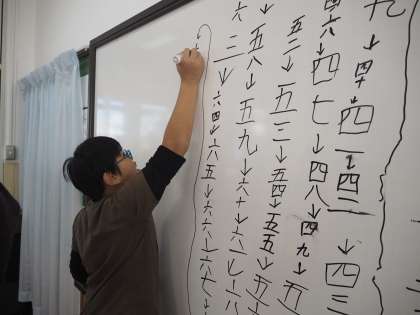 九↓四十↓四一↓四二↓四三
四六↓四七↓四八↓四九↓五
五二↓五三↓五四↓五五↓五
↓五八↓五九↓六十↓六一↓六
六三↓六四↓六五↓六六↓六七↓